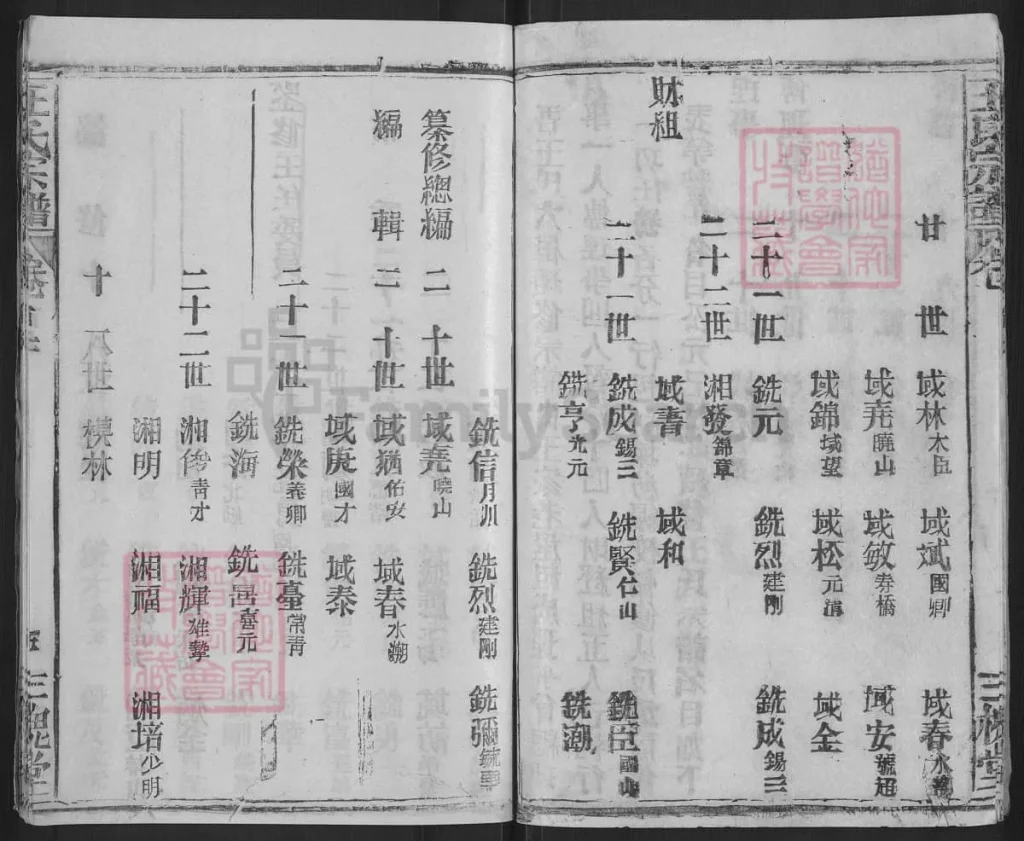 王氏宗譜
卷
三槐堂
財組
廿世 域林木臣 域斌國卿 域春水瀛
域堯曉山 域敏春橋 域安號超
域錦域望 域松元清 域金
二十一世 銑元 銑烈建剛 銑成錫三
二十二世 湘發錦章
域書 域和
二十一世 銑成錫三 銑賢仁山 銑臣國山
銑亨光元 銑潮
銑信月川 銑烈建剛 銑彌
纂修總編 二十世 域堯曉山
編輯 二十世 域猶佑安 域春水瀛
域庚國才 域泰
二十一世 銑榮義卿 銑臺常青
銑海 銑
二十二世 湘俊青才 湘輝雄擎
湘明 湘福 湘培少明
十八世 模林
王氏宗譜
卷首
三槐堂
FamilySearch